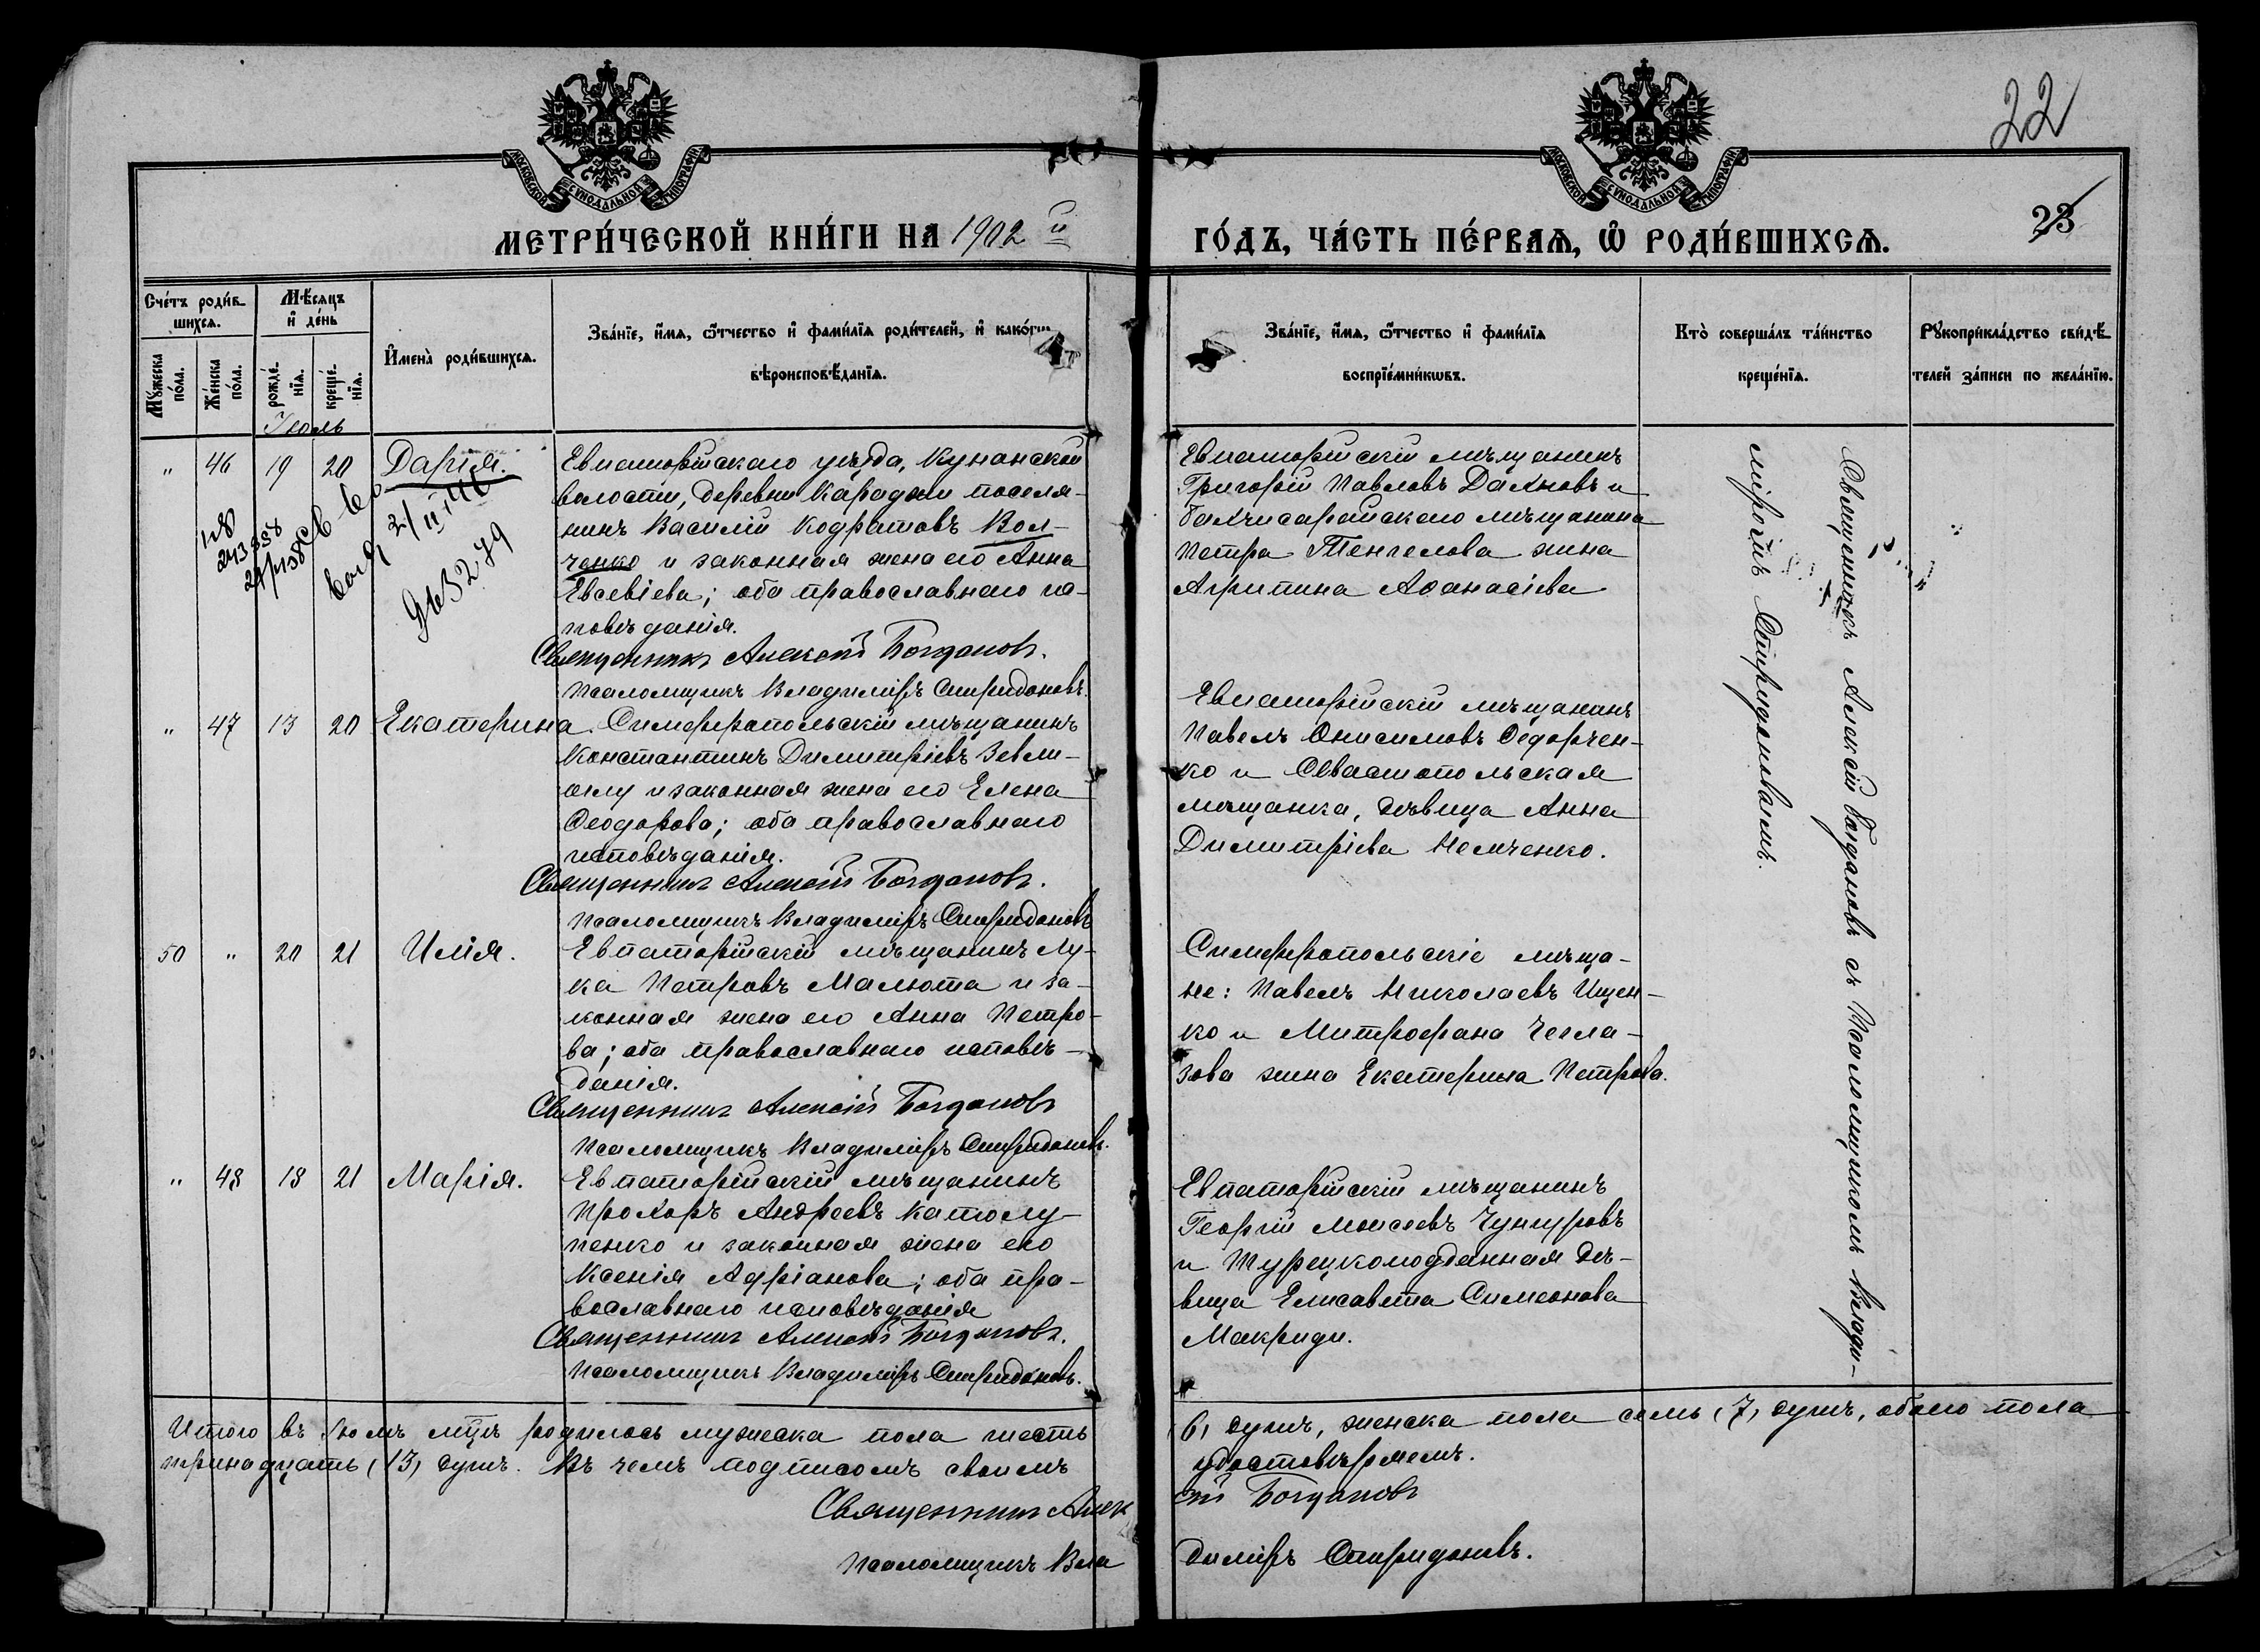 22
МОСКОВСКОЙ СѴНОДАЛЬНОЙ ТИПОГРАФІИ
МОСКОВСКОЙ СѴНОДАЛЬНОЙ ТИПОГРАФІИ
23
МЕТРИ́ЧЕСКОЙ КНИ́ГИ НА 1902 й
ГО́ДЪ, ЧА́СТЬ ПЕ́РВАѦ, Ѡ РОДИ́ВШИХСѦ.
Сче́тъ роди́в-
шихсѧ.
Мꙋжеска по́ла.
Же́нска по́ла.
Мѣ́сѧцъ
и҆ де́нь
рожде́-
нїѧ.
креще́-
нїѧ.
И҆мена̀ роди́вшихсѧ.
Зва́нїе, и҆́мѧ, ѻ҆́тчество и҆ фами́лїѧ роди́телей, и҆ како́гѡ
вѣроисповѣ́данїѧ.
Зва́нїе, и҆́мѧ, ѻ҆́тчество и҆ фами́лїѧ
воспрїе́мникѡвъ.
Кто̀ соверша́лъ та́инство
креще́нїѧ.
Рꙋкоприкла́дство свидѣ́-
телей за́писи по жела́нїю.
Іюль
" 46 19 20 Дарія.
Евпаторійскаго уѣзда, Кунанской
волости, деревни Караджи поселя-
нинъ Василій Кодратовъ Вол-
ченко и законная жена его Анна
Евсевіева; оба православнаго ис-
повѣданія.
Священникъ Алексій Богдановъ.
Псаломщикъ Владиміръ Спиридоновъ.
Евпаторійскій мѣщанинъ
Григорій Павловъ Даяновъ и
бахчисарайскаго мѣщанина
Петра Тенгелова жена
Агрипина Аѳанасіева
№3279
" 47 13 20 Екатерина.
Симферопольскій мѣщанинъ
Константинъ Димитріевъ Зевли-
оглу и законная жена его Елена
Ѳеодорова; оба православнаго
исповѣданія.
Священникъ Алексій Богдановъ.
Псаломщикъ Владиміръ Спиридоновъ
Евпаторійскій мѣщанинъ
Павелъ Онисимовъ Ѳедорчен-
ко и Севастопольская
мѣщанка, дѣвица Анна
Димитріева Немченко.
50 " 20 21 Илія.
Евпаторійскій мѣщанинъ Лу-
ка Петровъ Малюта и за-
конная жена его Анна Петро-
ва; оба православнаго исповѣ-
данія.
Священникъ Алексій Богдановъ
Псаломщикъ Владиміръ Спиридоновъ.
Симферопольскіе мѣща-
не: Павелъ Николаевъ Ищен-
ко и Митрофана Чегла-
зова жена Екатерина Петрова.
" 48 18 21 Марія.
Евпаторійскій мѣщанинъ
Прохоръ Андреевъ Католу-
пенко и законная жена его
Ксенія Адріанова; оба пра-
вославнаго исповѣданія
Священникъ Алексій Богдановъ.
Псаломщикъ Владиміръ Спиридоновъ.
Евпаторійскій мѣщанинъ
Георгій Моисеевъ Чунгуровъ
и Турецкоподданная дѣ-
вица Елисавета Симеонова
Макриди.
Священникъ Алексій Богдановъ съ Псаломщикомъ Влади-
міромъ Спиридоновымъ.
Итого въ Іюлѣ мцѣ родилось мужеска пола шесть (6) душъ, женска пола семь (7) душъ, обоего пола
тринадцать (13) душъ. Въ чемъ подписомъ своимъ удостовѣряемъ.
Священникъ Алексій Богдановъ
Псаломщикъ Владиміръ Спиридоновъ.